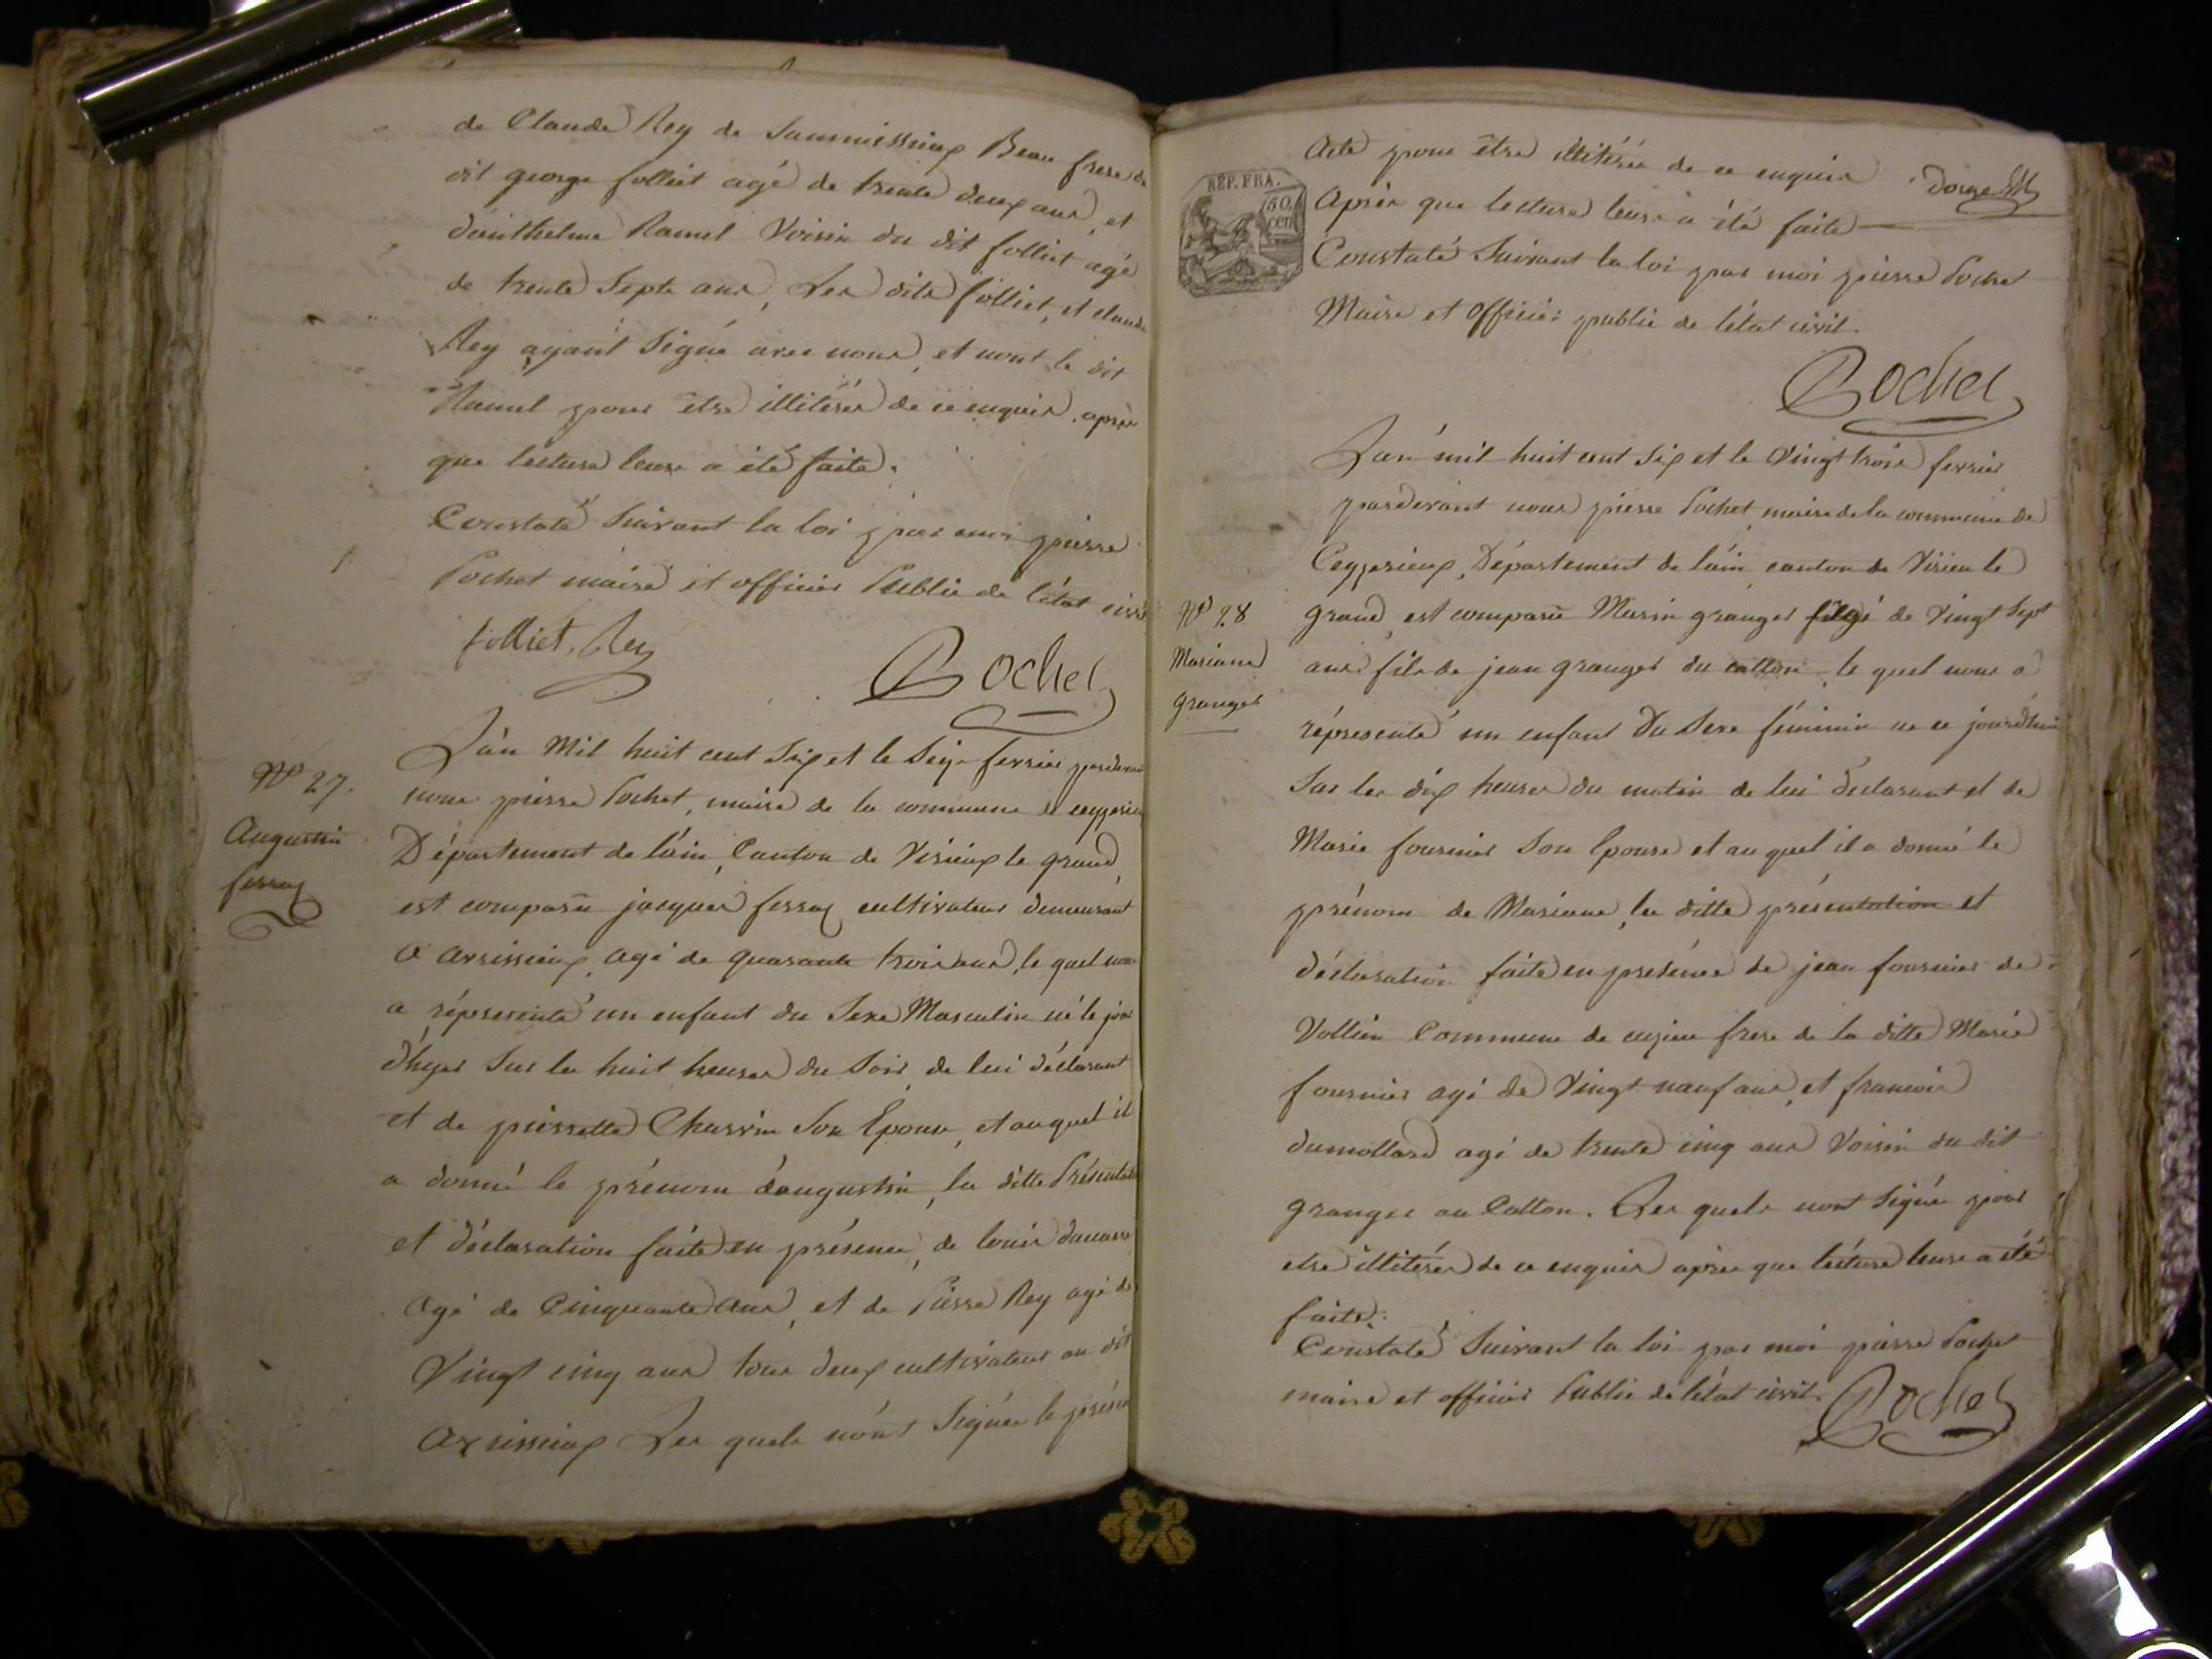 de Claude Rey de Saumissieux Beau frere du
dit george folliet agé de trente deux ans, et
d'anthelme Ramel Voisin du dit folliet agé
de trente Sept ans, Les dits folliet, et claude
Rey ayant Signé avec nous, et nont le dit
Ramel pour être illitérés de ce enquis, après
que lecture leurs a été faite.
Constaté Suivant la loi par moi pierre
Pochet maire et officier Public de l'état civil
folliet, Rey
Pochet
N° 27.
Augustin
ferraz
L'an Mil huit cent Six et le Seize fevrier pardevant
nous pierre Pochet, maire de la commune de ceyzerieu
Département de l'ain, Canton de Virieux le grand,
est comparu jacques ferraz cultivateur demeurant
a avrissieux, agé de quarante trois ans, le quel nous
a répresenté un enfant du Sexe Masculin né le jour
d'hyer Sur les huit heures du Soir, de lui déclarant
et de pierrette Charvin Son Epouse, et au quel il
a donné le prénom d'augustin, la ditte Présentation
et déclaration faite en présence, de louis
Agé de Cinquante ans, et de Pierre Rey agé de
Vingt cinq ans tous deux cultivateurs au dit
Avrissieux Les quels n'ont Signés le présent
REP. FRA.
50.
cen
Acte pour être illitérés de ce enquis
Après que lecture leurs a été faite
Constaté Suivant la loi par moi pierre Pochet
Maire et Officier public de l'état civil.
Pochet
L'an mil huit cent Six et le Vingt trois fevrier
pardevant nous pierre Pochet maire de la commune de
Ceyzerieux, Département de l'ain canton de Virieu le
N° 28
Mariane
granger
grand, est comparu Marin granger agé de Vingt Sept
ans fils de jean granger du catton le quel nous a
répresenté un enfant Du Sexe féminin né ce jourdhui
Sur les dix heures du matin de lui déclarant et de
Marie fournier Son Epouse et au quel il a donné le
prénom de Mariane, la ditte présentation et
déclaration faite en présence de jean fournier de
Vollien Commune de cuzieu frere de la ditte Marie
fournier agé de Vingt neuf ans, et francois
dumollard agé de trente cinq ans Voisin du dit
granger au Catton. Les quels nont Signés pour
etre illitérés de ce enquis après que lecture leurs a été
faite.
Constaté Suivant la loi par moi pierre Pochet
maire et officier Public de l'état civil.
Pochet